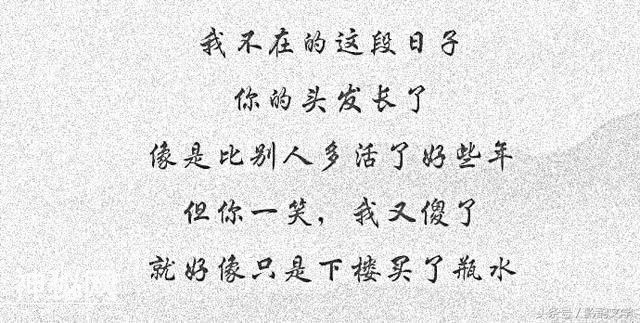 我不在的这段日子
你的头发长了
像是比别人多活了好些年
但你一笑，我又傻了
就好像只是下楼买了瓶水